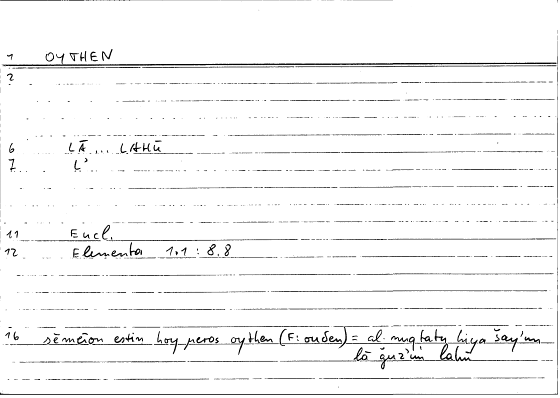 1 OYTHEN
2
6 LĀ... LAHŪ
7 L'
11 Eucl.
12 Elementa 1.1 : 8.8
16 sēmeion estin hoy meros oythen (F: ouden) = al-nuqtatu hiya šay'un
lā ǧuz'un lahū